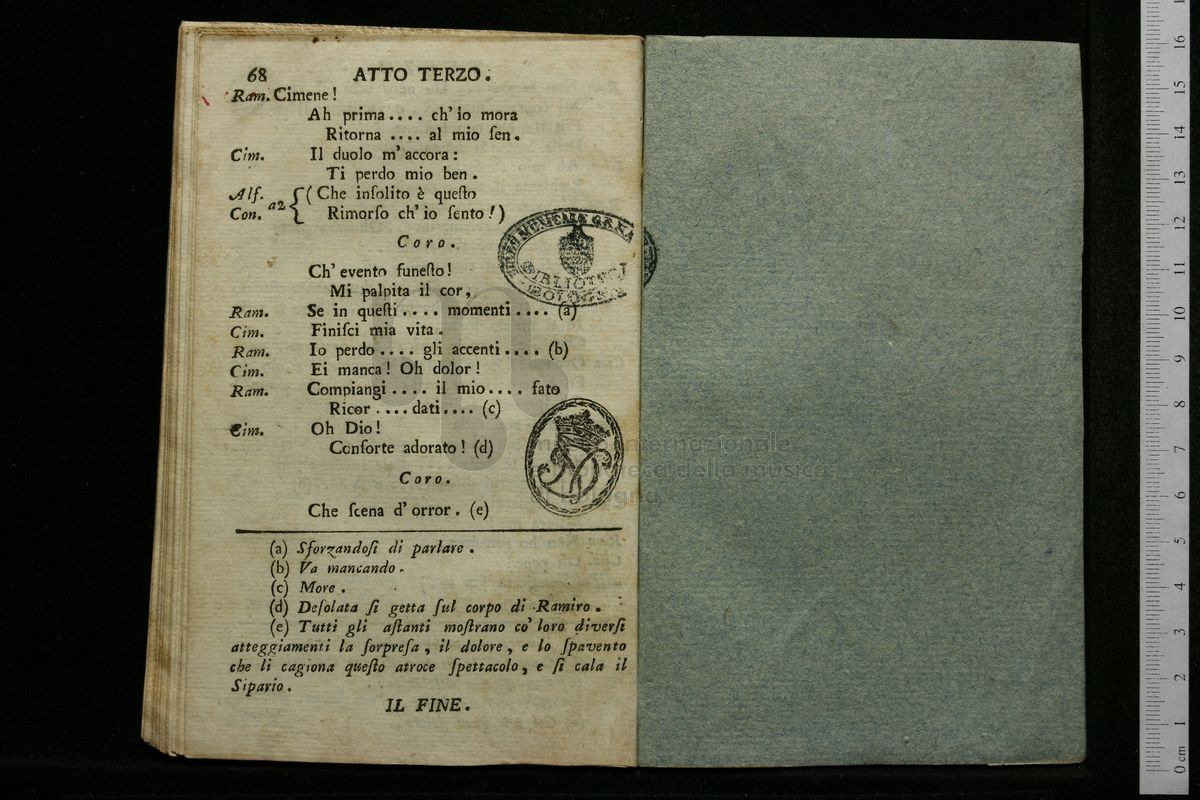 68 ATTO TERZO.
Ram. Cimene!
Ah prima.... ch'io mora
Ritorna .... al mio ſen.
Cim. Il duolo m'accora:
Ti perdo mio ben.
Alſ. (Che inſolito è queſto
Con. a2 Rimorſo ch'io ſento!)
Coro.
Ch'evento funeſto!
Mi palpita il cor,
Ram. Se in queſti.... momenti.... (a)
Cim. Finiſci mia vita.
Ram. Io perdo.... gli accenti.... (b)
Cim. Ei manca! Oh dolor!
Ram. Compiangi.... il mio.... fato
Ricor....dati.... (c)
Cim. Oh Dio!
Conſorte adorato! (d)
Coro.
Che ſcena d'orror. (e)
(a) Sforzandoſi di parlare.
(b) Va mancando.
(c) More.
(d) Deſolata ſi getta ſul corpo di Ramiro.
(e) Tutti gli aſtanti moſtrano co' loro diverſi
atteggiamenti la ſorpreſa, il dolore, e lo ſpavento
che li cagiona queſto atroce ſpettacolo, e ſi cala il
Sipario.
IL FINE.
BIBLIOTECA
internazionale
della musica
0 cm 1 2 3 4 5 6 7 8 9 10 11 12 13 14 15 16